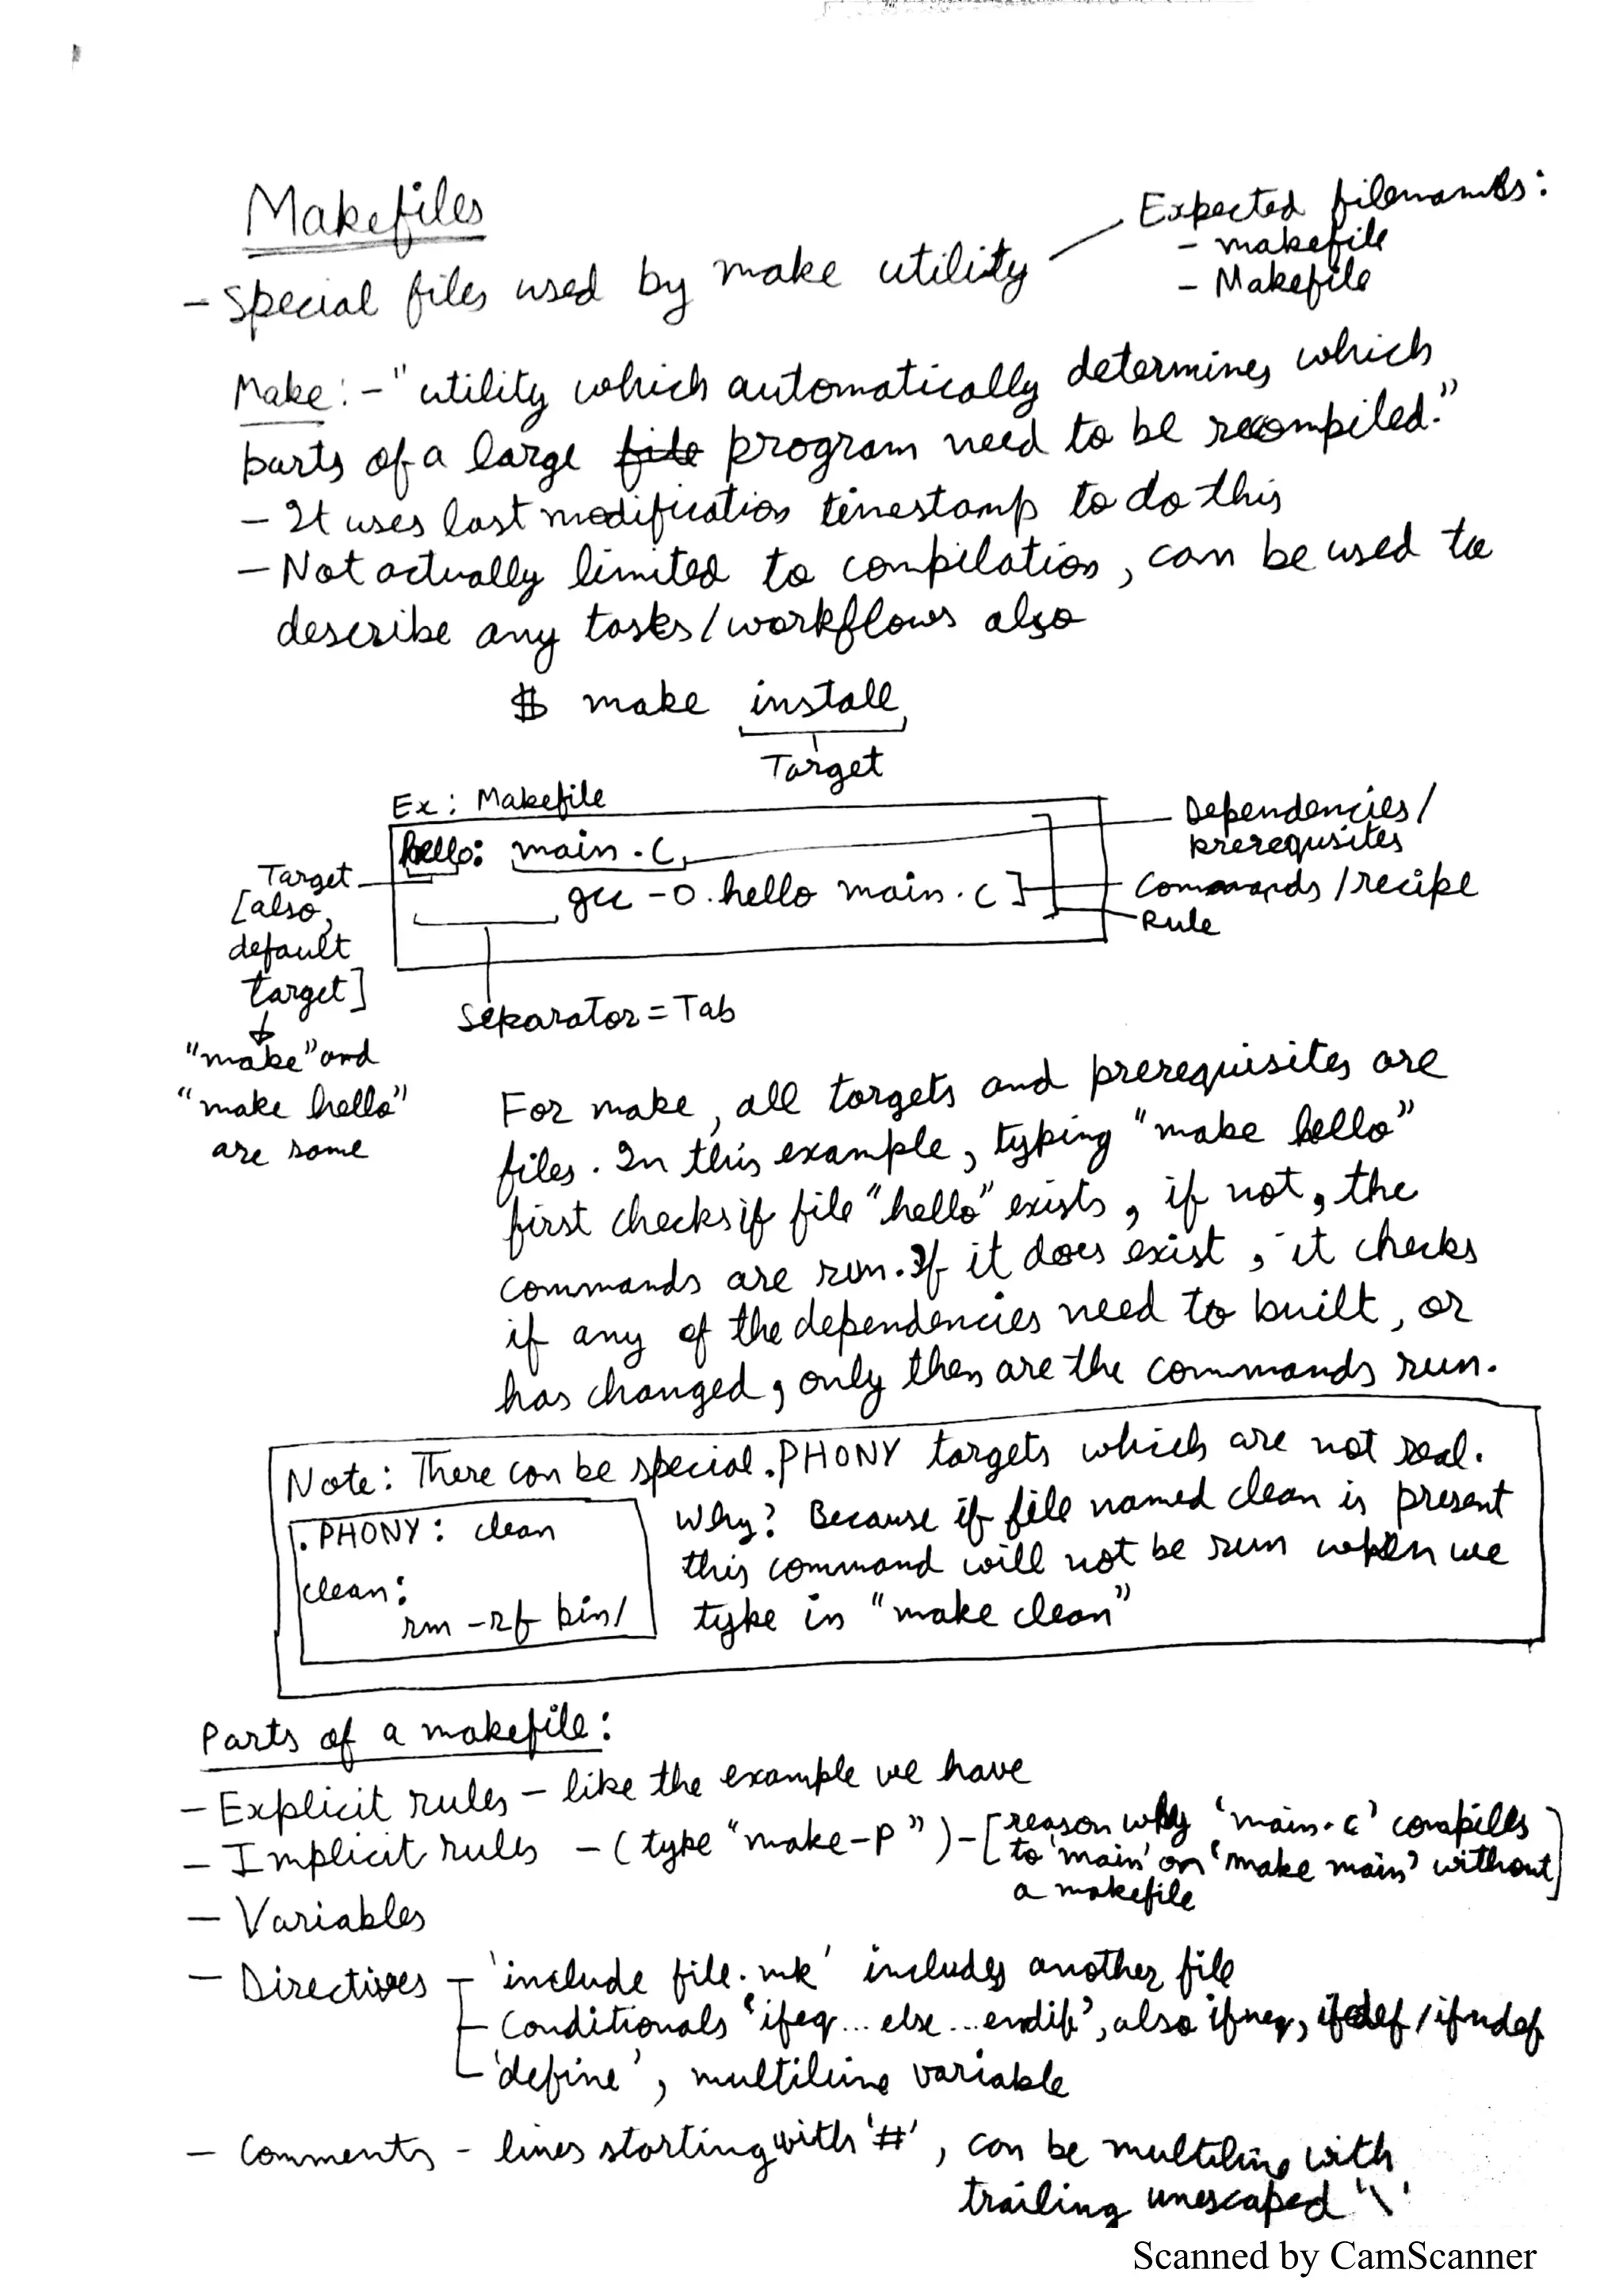 Makefiles
- Special files used by make utility
Expected filenames:
- makefile
- Makefile
Make:- "utility which automatically determines which
parts of a large file program need to be recompiled."
- It uses last modification timestamp to do this
- Not actually limited to compilation, can be used to
describe any tasks/workflows also
$ make install
Target
Ex: Makefile
hello: main.c
gcc -o hello main.c
Dependencies/
prerequisites
Commands/recipe
Rule
Target
[also,
default
target]
"make" and
"make hello"
are same
Separator = Tab
For make, all targets and prerequisites are
files. In this example, typing "make hello"
first checks if file "hello" exists, if not, the
commands are run. If it does exist, it checks
if any of the dependencies need to built, or
has changed, only then are the commands run.
Note: There can be special .PHONY targets which are not real.
.PHONY: clean
clean:
rm -rf bin/
Why? Because if file named clean is present
this command will not be run when we
type in "make clean"
Parts of a makefile:
- Explicit rules - like the example we have
- Implicit rules - (type "make -p") - [reason why 'main.c' compiles
to 'main' on 'make main' without
a makefile]
- Variables
- Directives - 'include file.mk' includes another file
- Conditionals 'ifeq...else...endif', also ifneq, ifdef/ifndef
- 'define', multiline variable
- Comments - lines starting with '#', can be multiline with
trailing unescaped '\'
Scanned by CamScanner